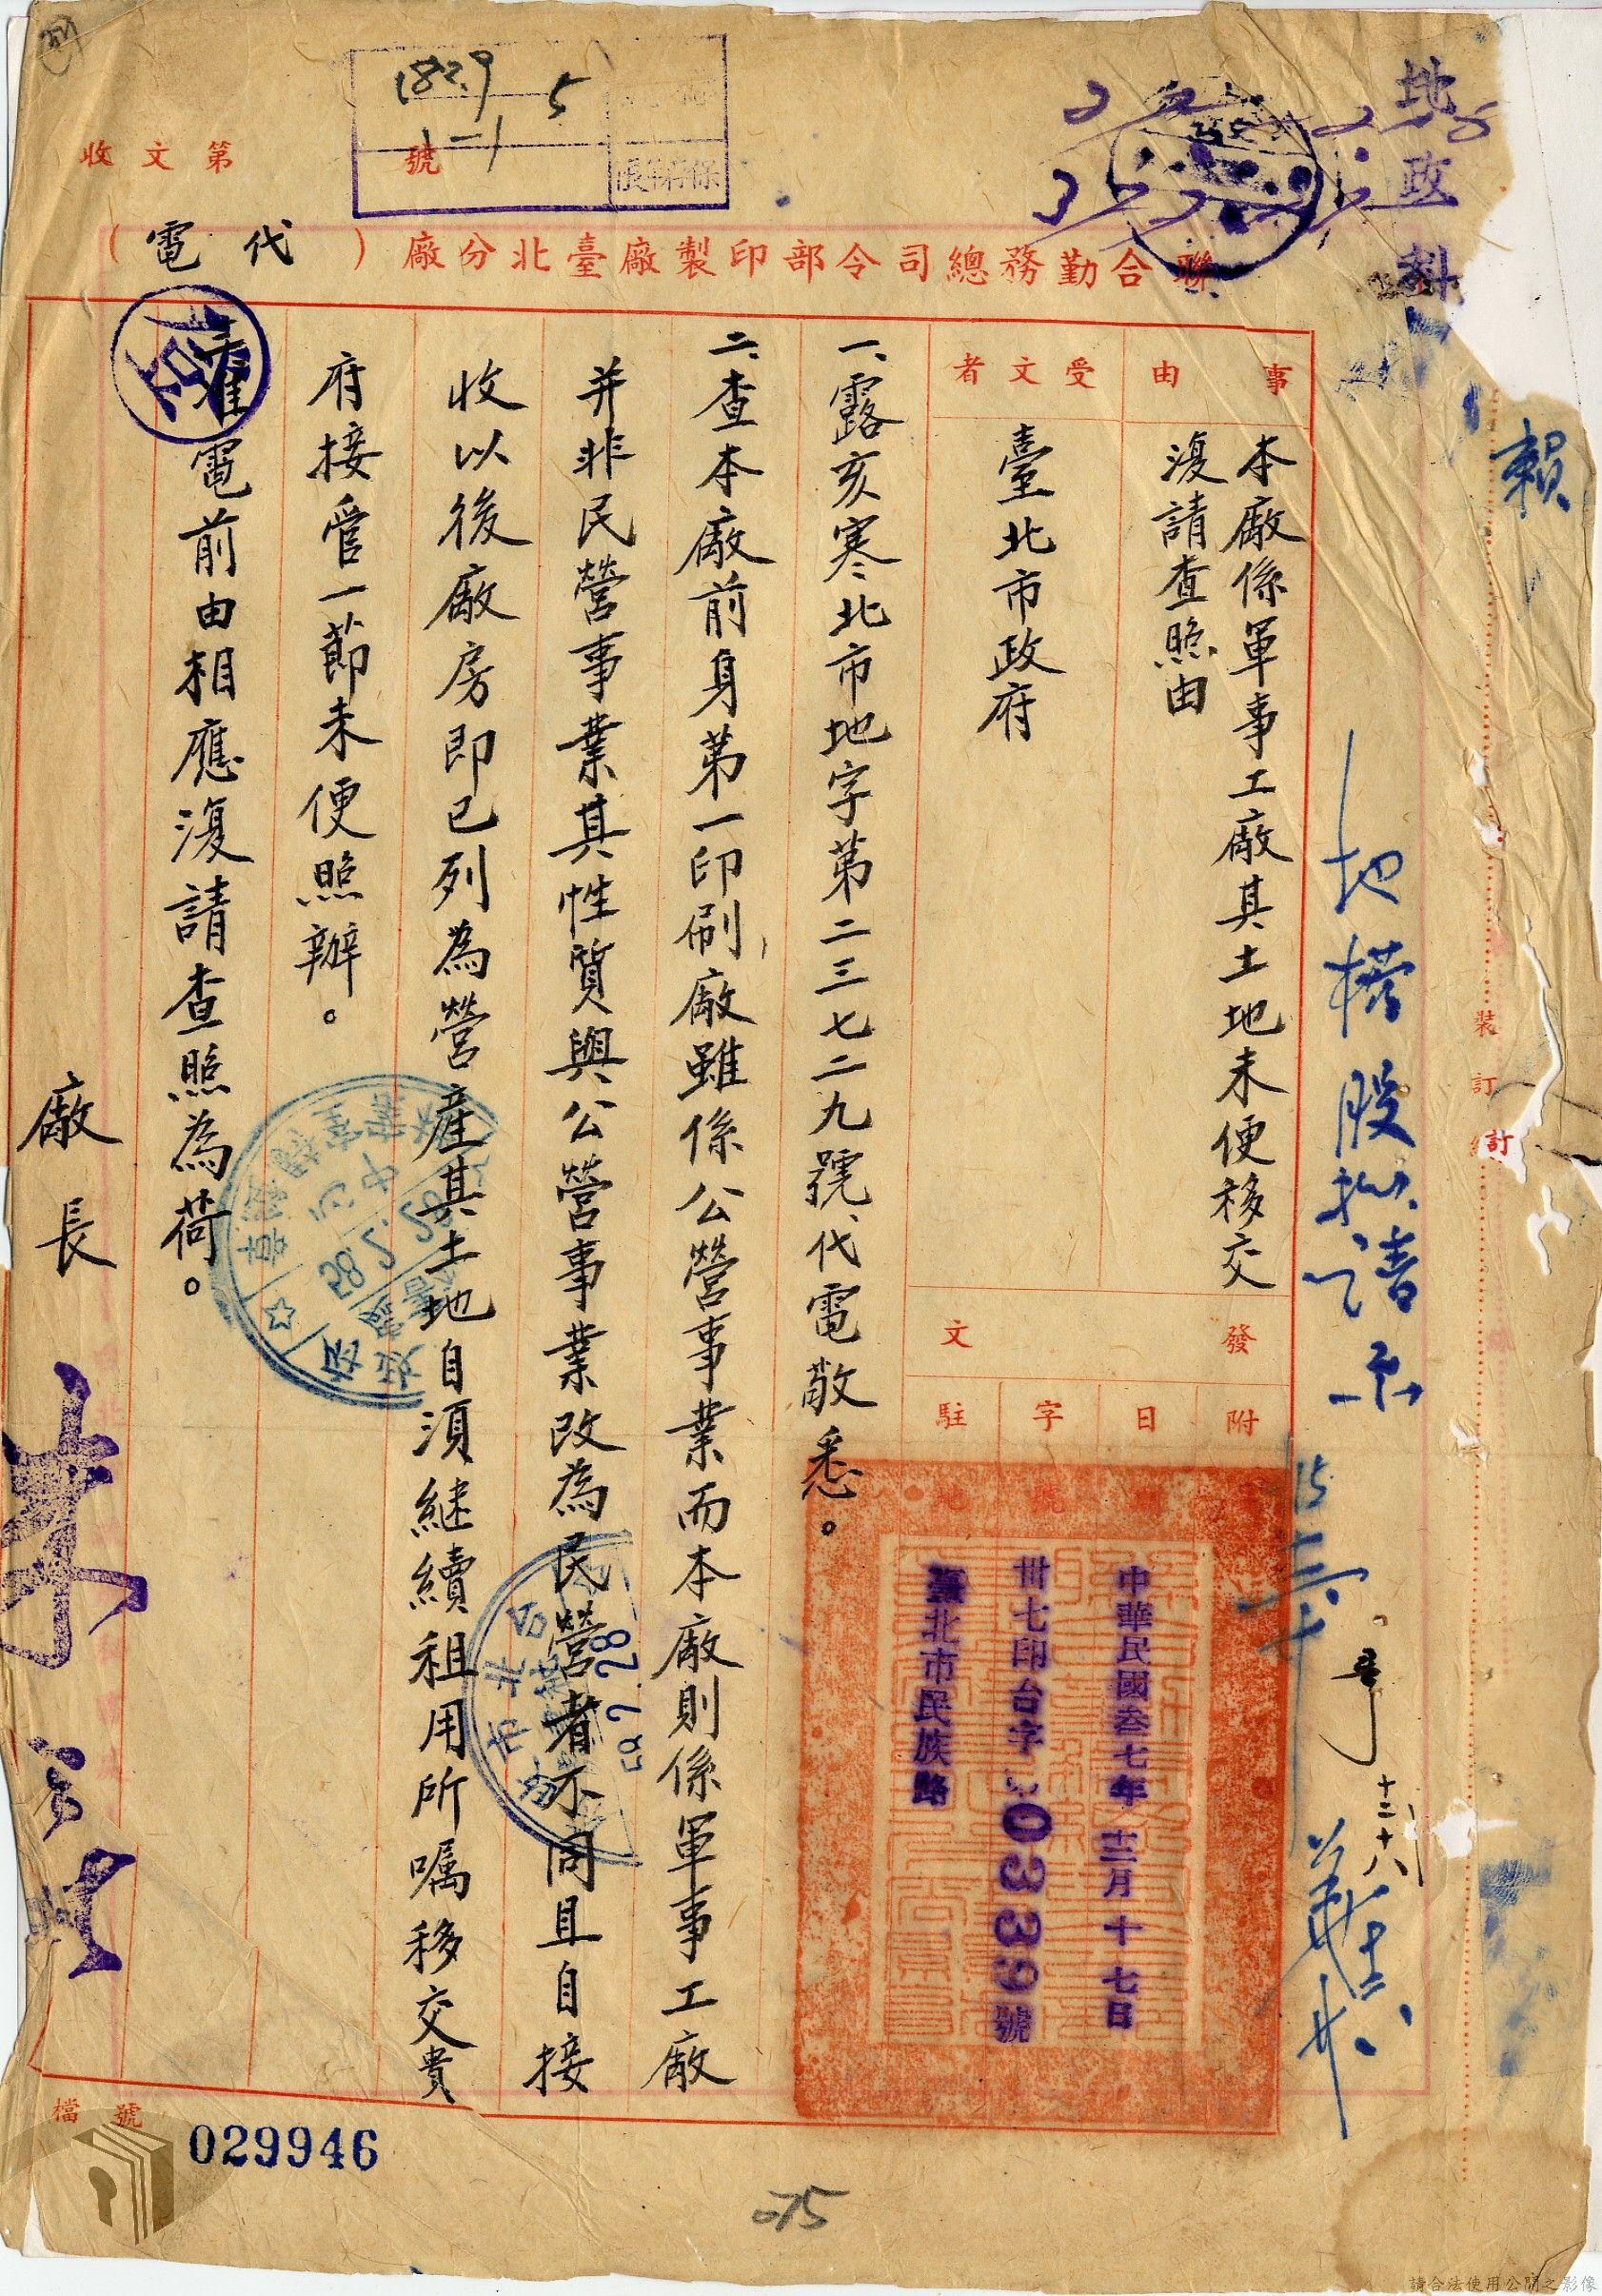 地政科
賴
地權股擬請示
裝訂
訂
182.9
5
1-1
收文第 號
聯合勤務總司令部印製廠臺北分廠(代電)
事由
本廠係軍事工廠其土地未便移交
復請查照由
受文者
臺北市政府
發文
附
日
字
駐
中華民國叁七年十二月十七日
卅七印台字0339號
臺北市民族路
一、露亥寒北市地字第二三七二九號代電敬悉。
二、查本廠前身第一印刷廠雖係公營事業而本廠則係軍事工廠
并非民營事業其性質與公營事業改為民營者不同且自接
收以後廠房即已列為營產其土地自須繼續租用所囑移交貴
府接管一節未便照辦。
三、准電前由相應復請查照為荷。
廠長
十二十八
58.2.28
檔號
029946
075
請合法使用公開之影像